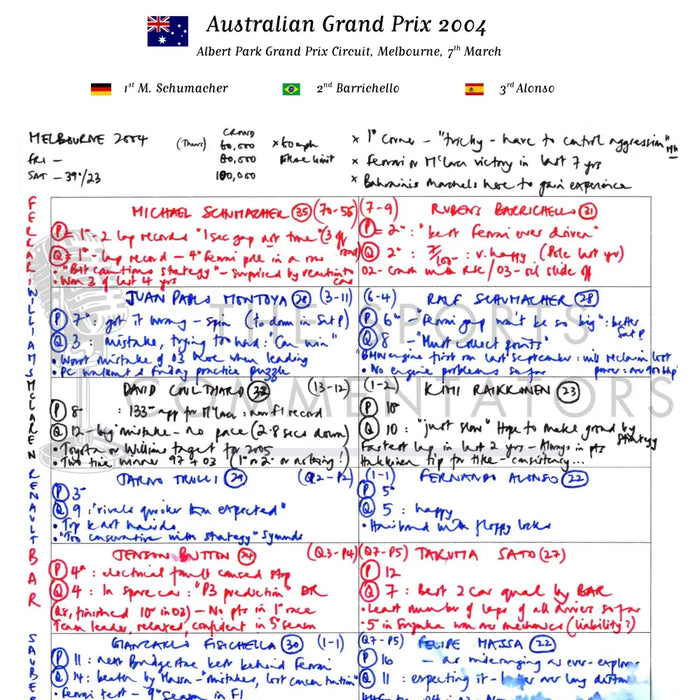 Australian Grand Prix 2004
Albert Park Grand Prix Circuit, Melbourne, 7th March
1st M. Schumacher 2nd Barrichello 3rd Alonso
MELBOURNE 2004
FRI -
SAT - 39°/23
CROWD
(Thurs) 60,000
80,000
100,000
× 60mph
limit
× 1st Corner - "tricky - have to control aggression"
× Ferrari or M'Laren victory in last 7 yrs
× Bahraini Marshals here to gain experience
THE SPORTS
COMMENTATORS
FERRARI
MICHAEL SCHUMACHER (35) (70-56)
P = 1st - 2 lap record "1 sec gap not true"
Q = 1st - lap record - 4th Ferrari pole in a row
strategy" - surprised by reaction
• Won 3 of last 4 yrs
(7-9) RUBENS BARRICHELLO (31)
P = 2nd : "best Ferrari ever driven"
Q 2nd : v. happy (Pole last yr)
02 - Crash with RSC / 03 - slide off
WILLIAMS
JUAN PABLO MONTOYA (28) (3-11)
P 7th : got it wrong - spin
Q 3 : mistake, trying too hard : "Can win"
• Worst mistake of 03 here when leading
• PC Friday practice puzzle
(6-4) RALF SCHUMACHER (28)
P 6th "Ferrari gap won't be so big" : better
Q 8 - "Must collect points"
BMW engine first on last September :
• No engine problems so far
MCLAREN
DAVID COULTHARD (32) (13-12)
P 8th : 133rd app for M'Laren : new F1 record
Q 12 - big mistake - no pace (2.8 secs down)
• Toyota or Williams target for 2005
• Two time winner 97 + 03 (1st or 2nd or nothing!)
(1-2) KIMI RAIKKONEN (23)
P 10
Q 10 : "just slow" Hope to make ground by strategy
fastest lap in last 2 yrs - Always in pts
Hakkinen tip for title - consistency...
RENAULT
JARNO TRULLI (29) (Q2-P2)
P 3rd
Q 9 : "rivals quicker than expected"
• Top kart
• "Too conservative with strategy" Symonds
(1-1) FERNANDO ALONSO (22)
P 5th
Q 5 : happy
• Hairband with floppy locks
BAR
JENSON BUTTON (24) (Q3-P4)
P 4th : electrical fault caused stop
Q 4 : In spare car : "P3 prediction" DR
finished 10th in 03) - No pts in 1st race
Team leader, relaxed, confident in 5th season
(Q7-P5) TAKUMA SATO (27)
P 12
Q 7 : Best 2 car qual by BAR
• Least number of laps of all drivers so far
• 5 in Suzuka won are mechanics (liability?)
SAUBER
GIANCARLO FISICHELLA (30) (1-1)
P 11 : next Bridgestone best behind Ferrari
Q 14 : beaten by Massa - "mistakes, lost concentration"
• Ferrari test - 9th season in F1
(Q7-P5) FELIPE MASSA (22)
P 16 - as ever -
Q 11 : expecting it -